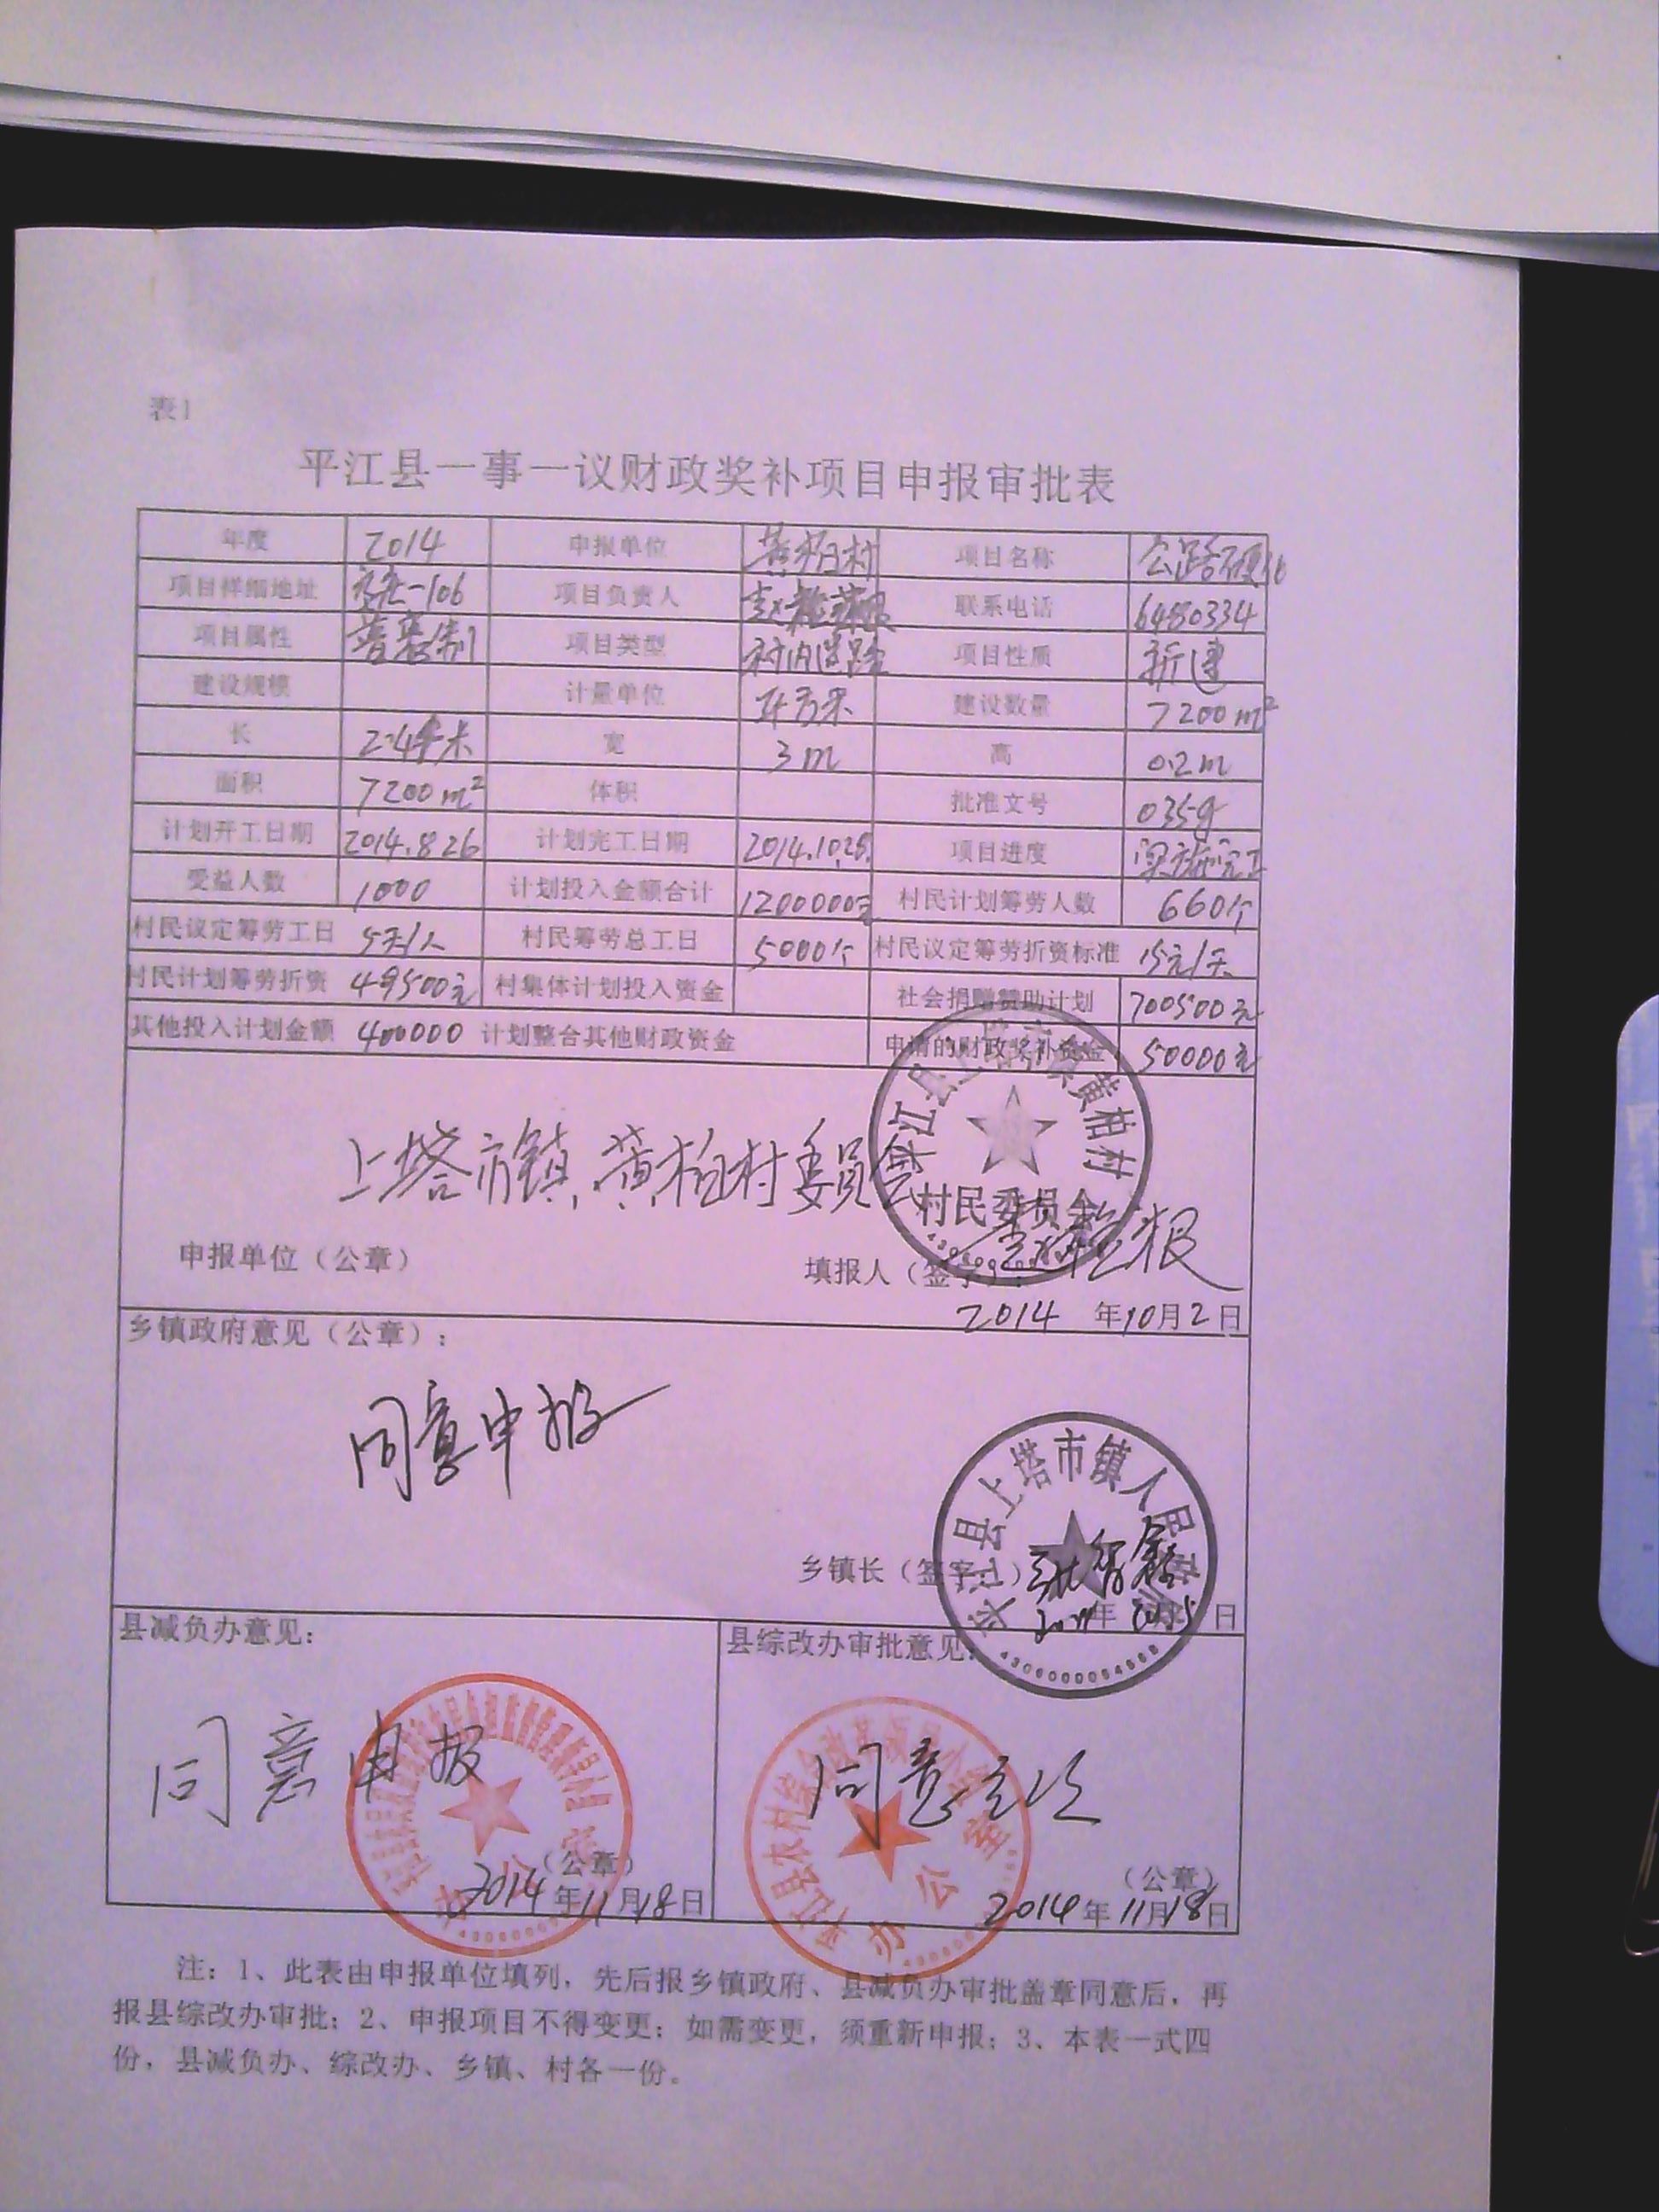 表1
平江县一事一议财政奖补项目申报审批表
年度 2014 申报单位 黄柏村 项目名称 公路硬化
项目详细地址 -106 项目负责人 联系电话 6480334
项目属性 普惠制 项目类型 村内道路 项目性质 新建
建设规模 计量单位 平方米 建设数量 7200m²
长 2.4千米 宽 3m 高 0.2m
面积 7200m² 体积 批准文号
计划开工日期 2014.8.26 计划完工日期 2014.10.26. 项目进度 完工
受益人数 1000 计划投入金额合计 1200000元 村民计划筹劳人数 660个
村民议定筹劳工日 5天/人 村民筹劳总工日 5000个 村民议定筹劳折资标准 15元/天
村民计划筹劳折资 49500元 村集体计划投入资金 社会捐赠赞助计划 700500元
其他投入计划金额 400000 计划整合其他财政资金 申请的财政奖补资金 50000元
上塔市镇黄柏村委员会
平江县上塔市镇黄柏村
村民委员会
申报单位（公章） 填报人（签字）：
2014 年10月2日
乡镇政府意见（公章）：
同意申报
平江县上塔市镇人民政府
乡镇长（签字）
年 月 日
县减负办意见： 县综改办审批意见：
同意申报 同意立项
平江县农村综合改革领导小组
办公室 办公室
（公章） （公章）
2014年11月18日 2014年11月18日
注：1、此表由申报单位填列，先后报乡镇政府、县减负办审批盖章同意后，再
报县综改办审批；2、申报项目不得变更；如需变更，须重新申报；3、本表一式四
份，县减负办、综改办、乡镇、村各一份。